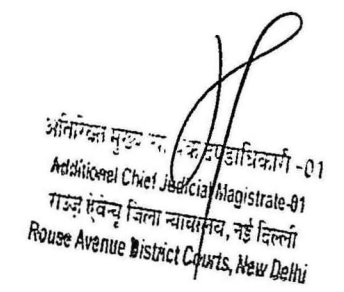 अतिरिक्त मुख्य दण्डाधिकारी -01
Additional Chief Judicial Magistrate-01
राउज़ ऐवेन्यू जिला न्यायालय, नई दिल्ली
Rouse Avenue District Courts, New Delhi